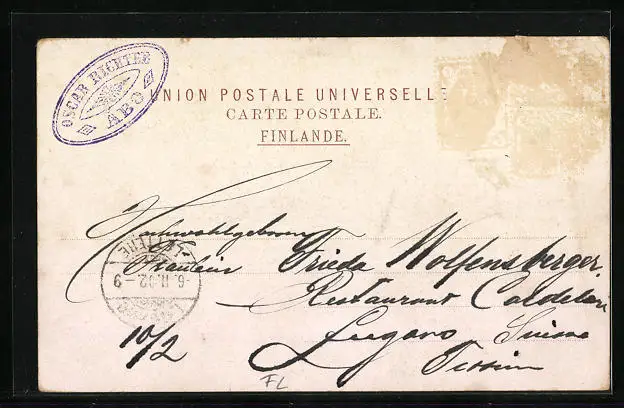 OSCAR RICHTER
ÅBO
UNION POSTALE UNIVERSELLE
CARTE POSTALE.
FINLANDE.
Hochwohlgeboren
Fräulein Frieda Wolfensberger,
Restaurant
Lugano Suisse
Tessin
10/2
LETTERE
-6.II.02-9
FL